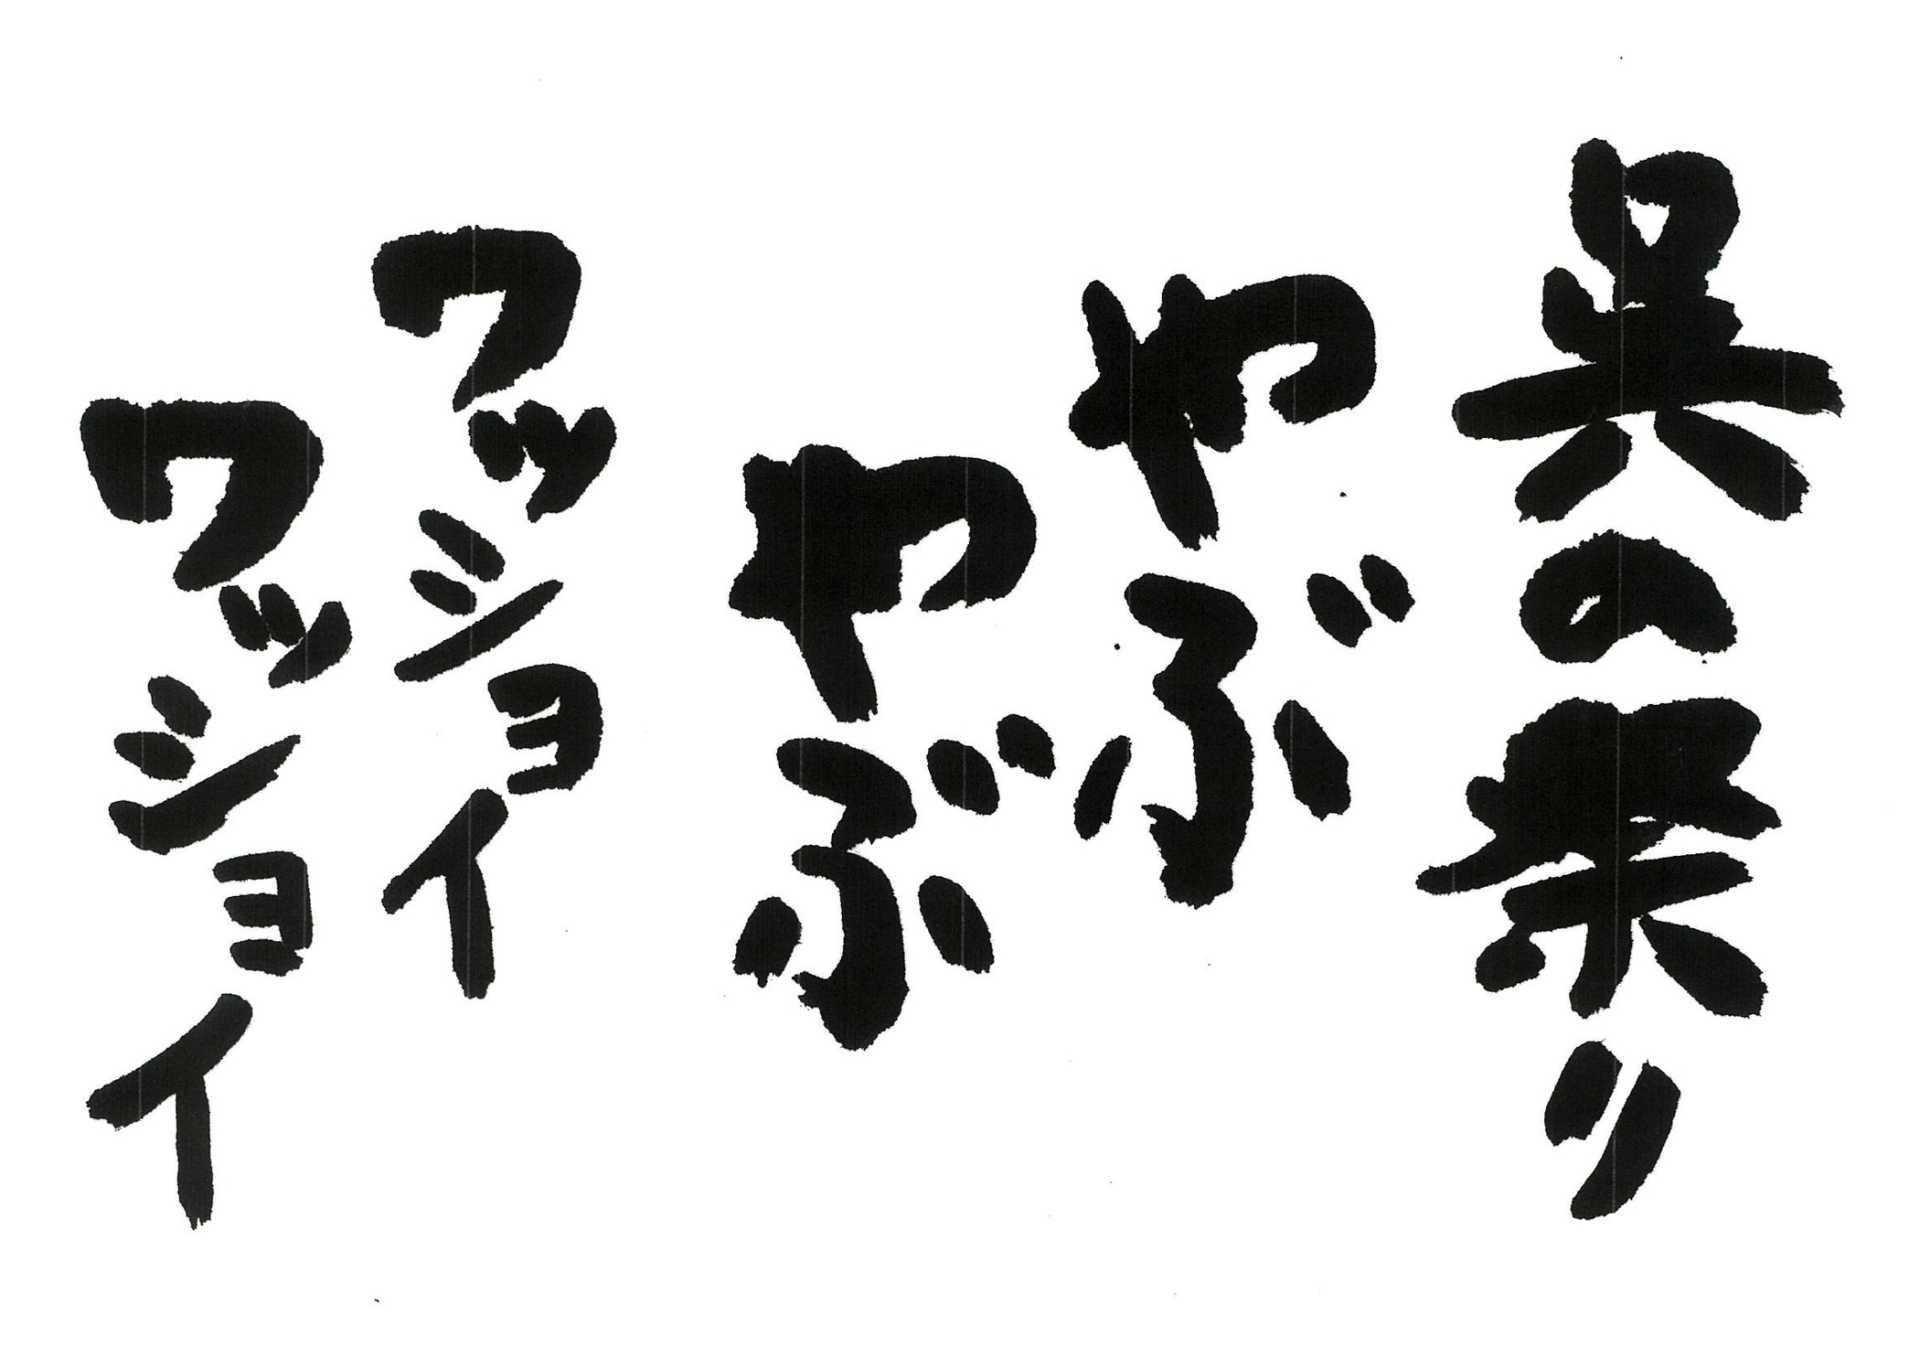 呉の祭り
やぶ
やぶ
ワッショイ
ワッショイ